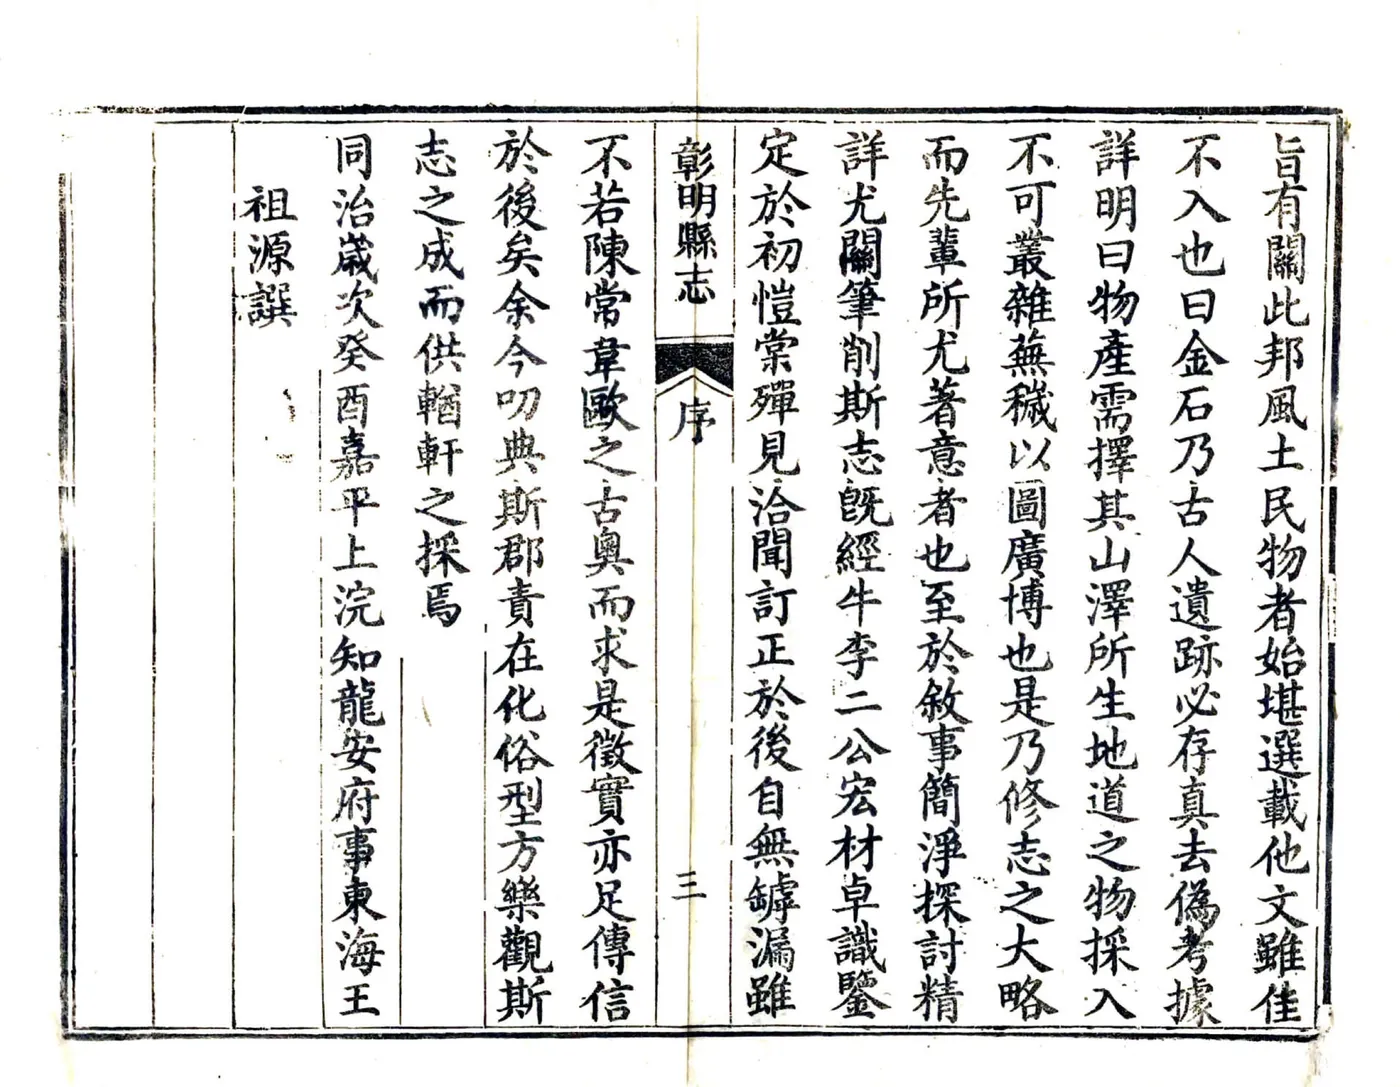 旨有關此邦風土民物者始堪選載他文雖佳
不入也曰金石乃古人遺跡必存真去偽考據
詳明曰物產需擇其山澤所生地道之物採入
不可叢雜蕪穢以圖廣博也是乃修志之大略
而先輩所尤著意者也至於敘事簡淨探討精
詳尤關筆削斯志既經牛李二公宏材卓識鑒
定於初愷棠殫見洽聞訂正於後自無罅漏雖
彰明縣志
序
三
不若陳常韋歐之古奧而求是徵實亦足傳信
於後矣余今叨典斯郡責在化俗型方樂觀斯
志之成而供輶軒之採焉
同治歲次癸酉嘉平上浣知龍安府事東海王
祖源譔